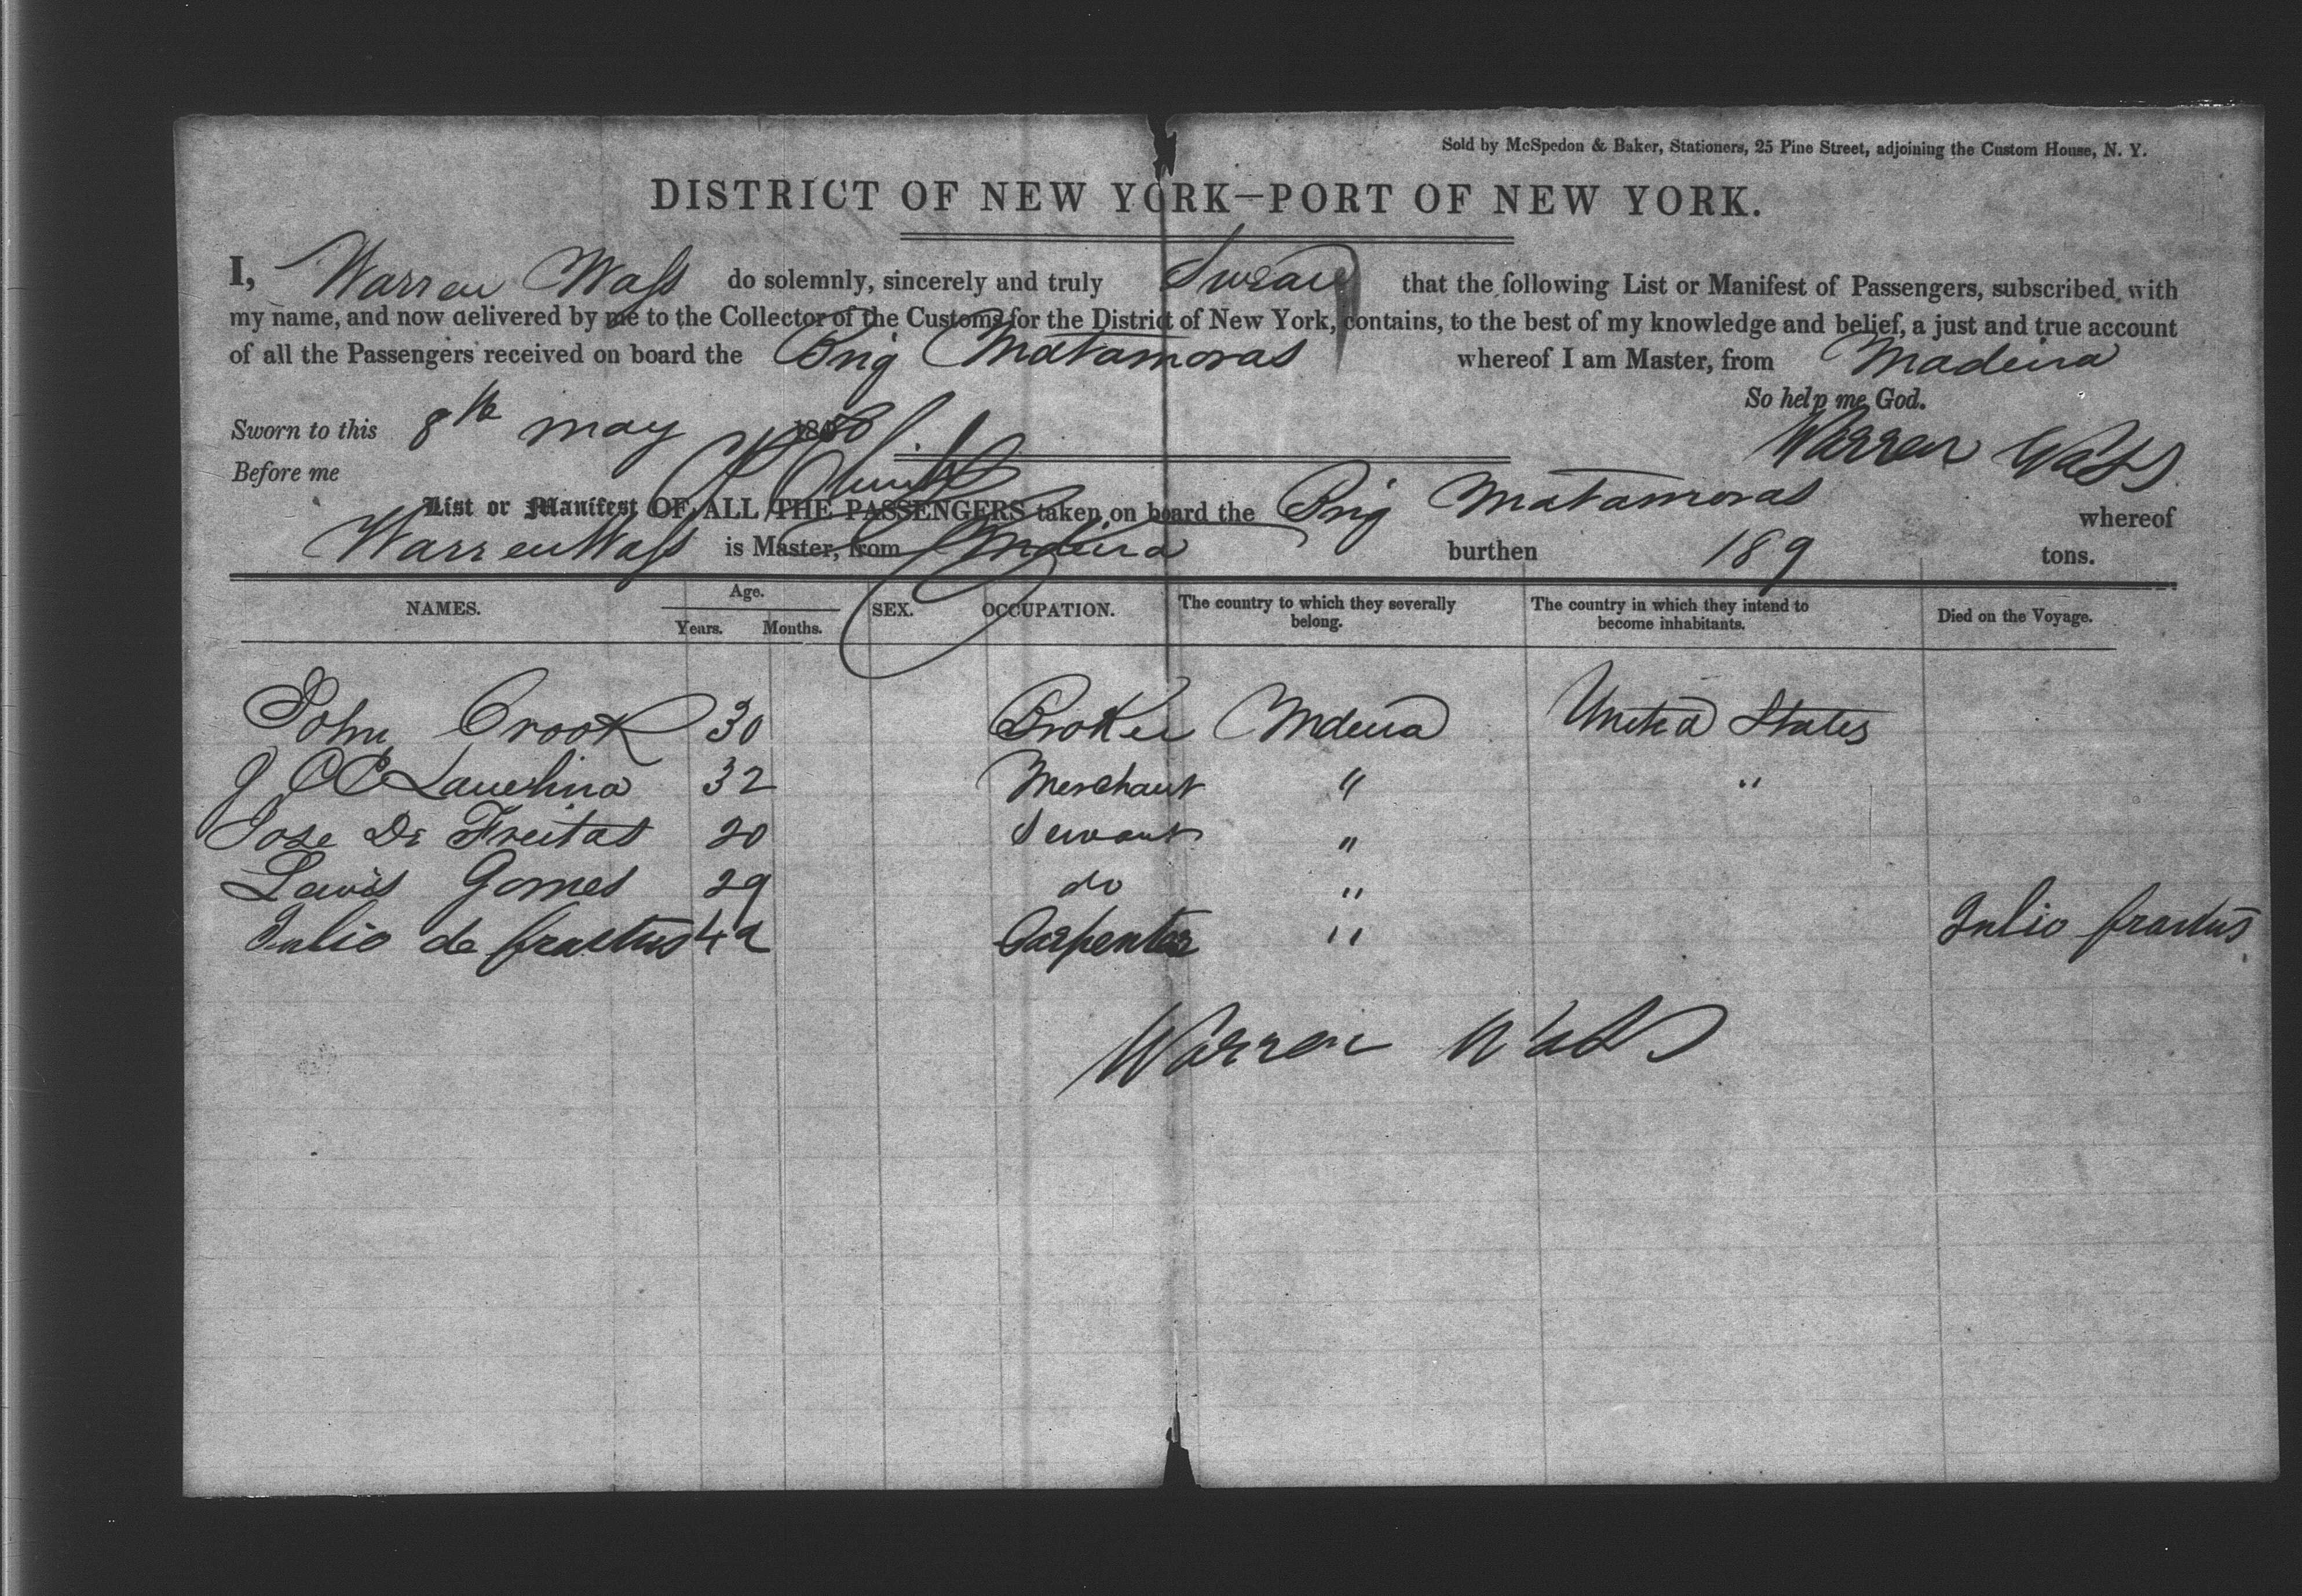 Sold by McSpedon & Baker, Stationers, 25 Pine Street, adjoining the Custom House, N. Y.
DISTRICT OF NEW YORK—PORT OF NEW YORK.
I, Warren Wass do solemnly, sincerely and truly Swear that the following List or Manifest of Passengers, subscribed with
my name, and now delivered by me to the Collector of the Customs for the District of New York, contains, to the best of my knowledge and belief, a just and true account
of all the Passengers received on board the Brig Matamoras whereof I am Master, from Madeira
So help me God.
Sworn to this 8th may 18
Warren Wass
Before me
List or Manifest OF ALL THE PASSENGERS taken on board the Brig Matamoras whereof
Warren Wass is Master, from Mdeira burthen 189 tons.
NAMES. Age. Years. Months. SEX. OCCUPATION. The country to which they severally belong. The country in which they intend to become inhabitants. Died on the Voyage.
John Crook 30 Broker Mdeira United States
J 32 Merchant " "
Jose De Freitas 20 Servant "
Lewis Gomes 29 do "
Julio de 42 Carpenter " Julio
Warren Wass